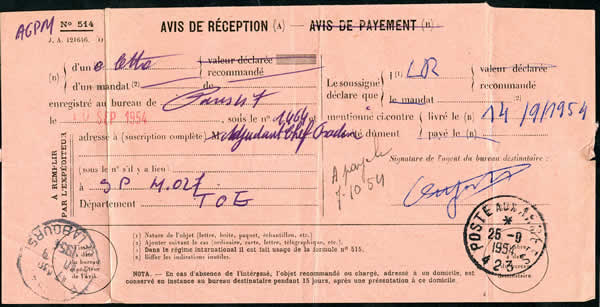 AGPM
N° 514
AVIS DE RÉCEPTION (A) — AVIS DE PAYEMENT (B)
J. A. 121646.
(B) d'un
valeur déclarée
recommandé
d'un mandat (2) de
enregistré au bureau de
le SEP 1954 sous le n° 1464
adresse à (suscription complète) M Adjudant Chef
(sous le n° s'il y a lieu)
à SP
Département TOE
A REMPLIR
PAR L'EXPÉDITEUR
Le soussigné
déclare que
l (1) LR valeur déclarée
recommandé
le mandat (2)
mentionné ci-contre
dûment
livré le (B) 14/9/1954
payé le (B)
7-10 54
Signature de l'agent du bureau destinataire :
Timbre
à date
du bureau
expéditeur
de l'avis.
POSTE AUX ARMÉES
25-9
1954
destinataire
(1) Nature de l'objet (lettre, boîte, paquet, échantillon, etc.)
(2) Ajouter suivant le cas (ordinaire, carte, lettre, télégraphique, etc.)
(A) Dans le régime international il est fait usage de la formule n° 515.
(B) Biffer les indications inutiles.
NOTA. — En cas d'absence de l'intéressé, l'objet recommandé ou chargé, adressé à un domicile, est
conservé en instance au bureau destinataire pendant 15 jours, après une première présentation à domicile.